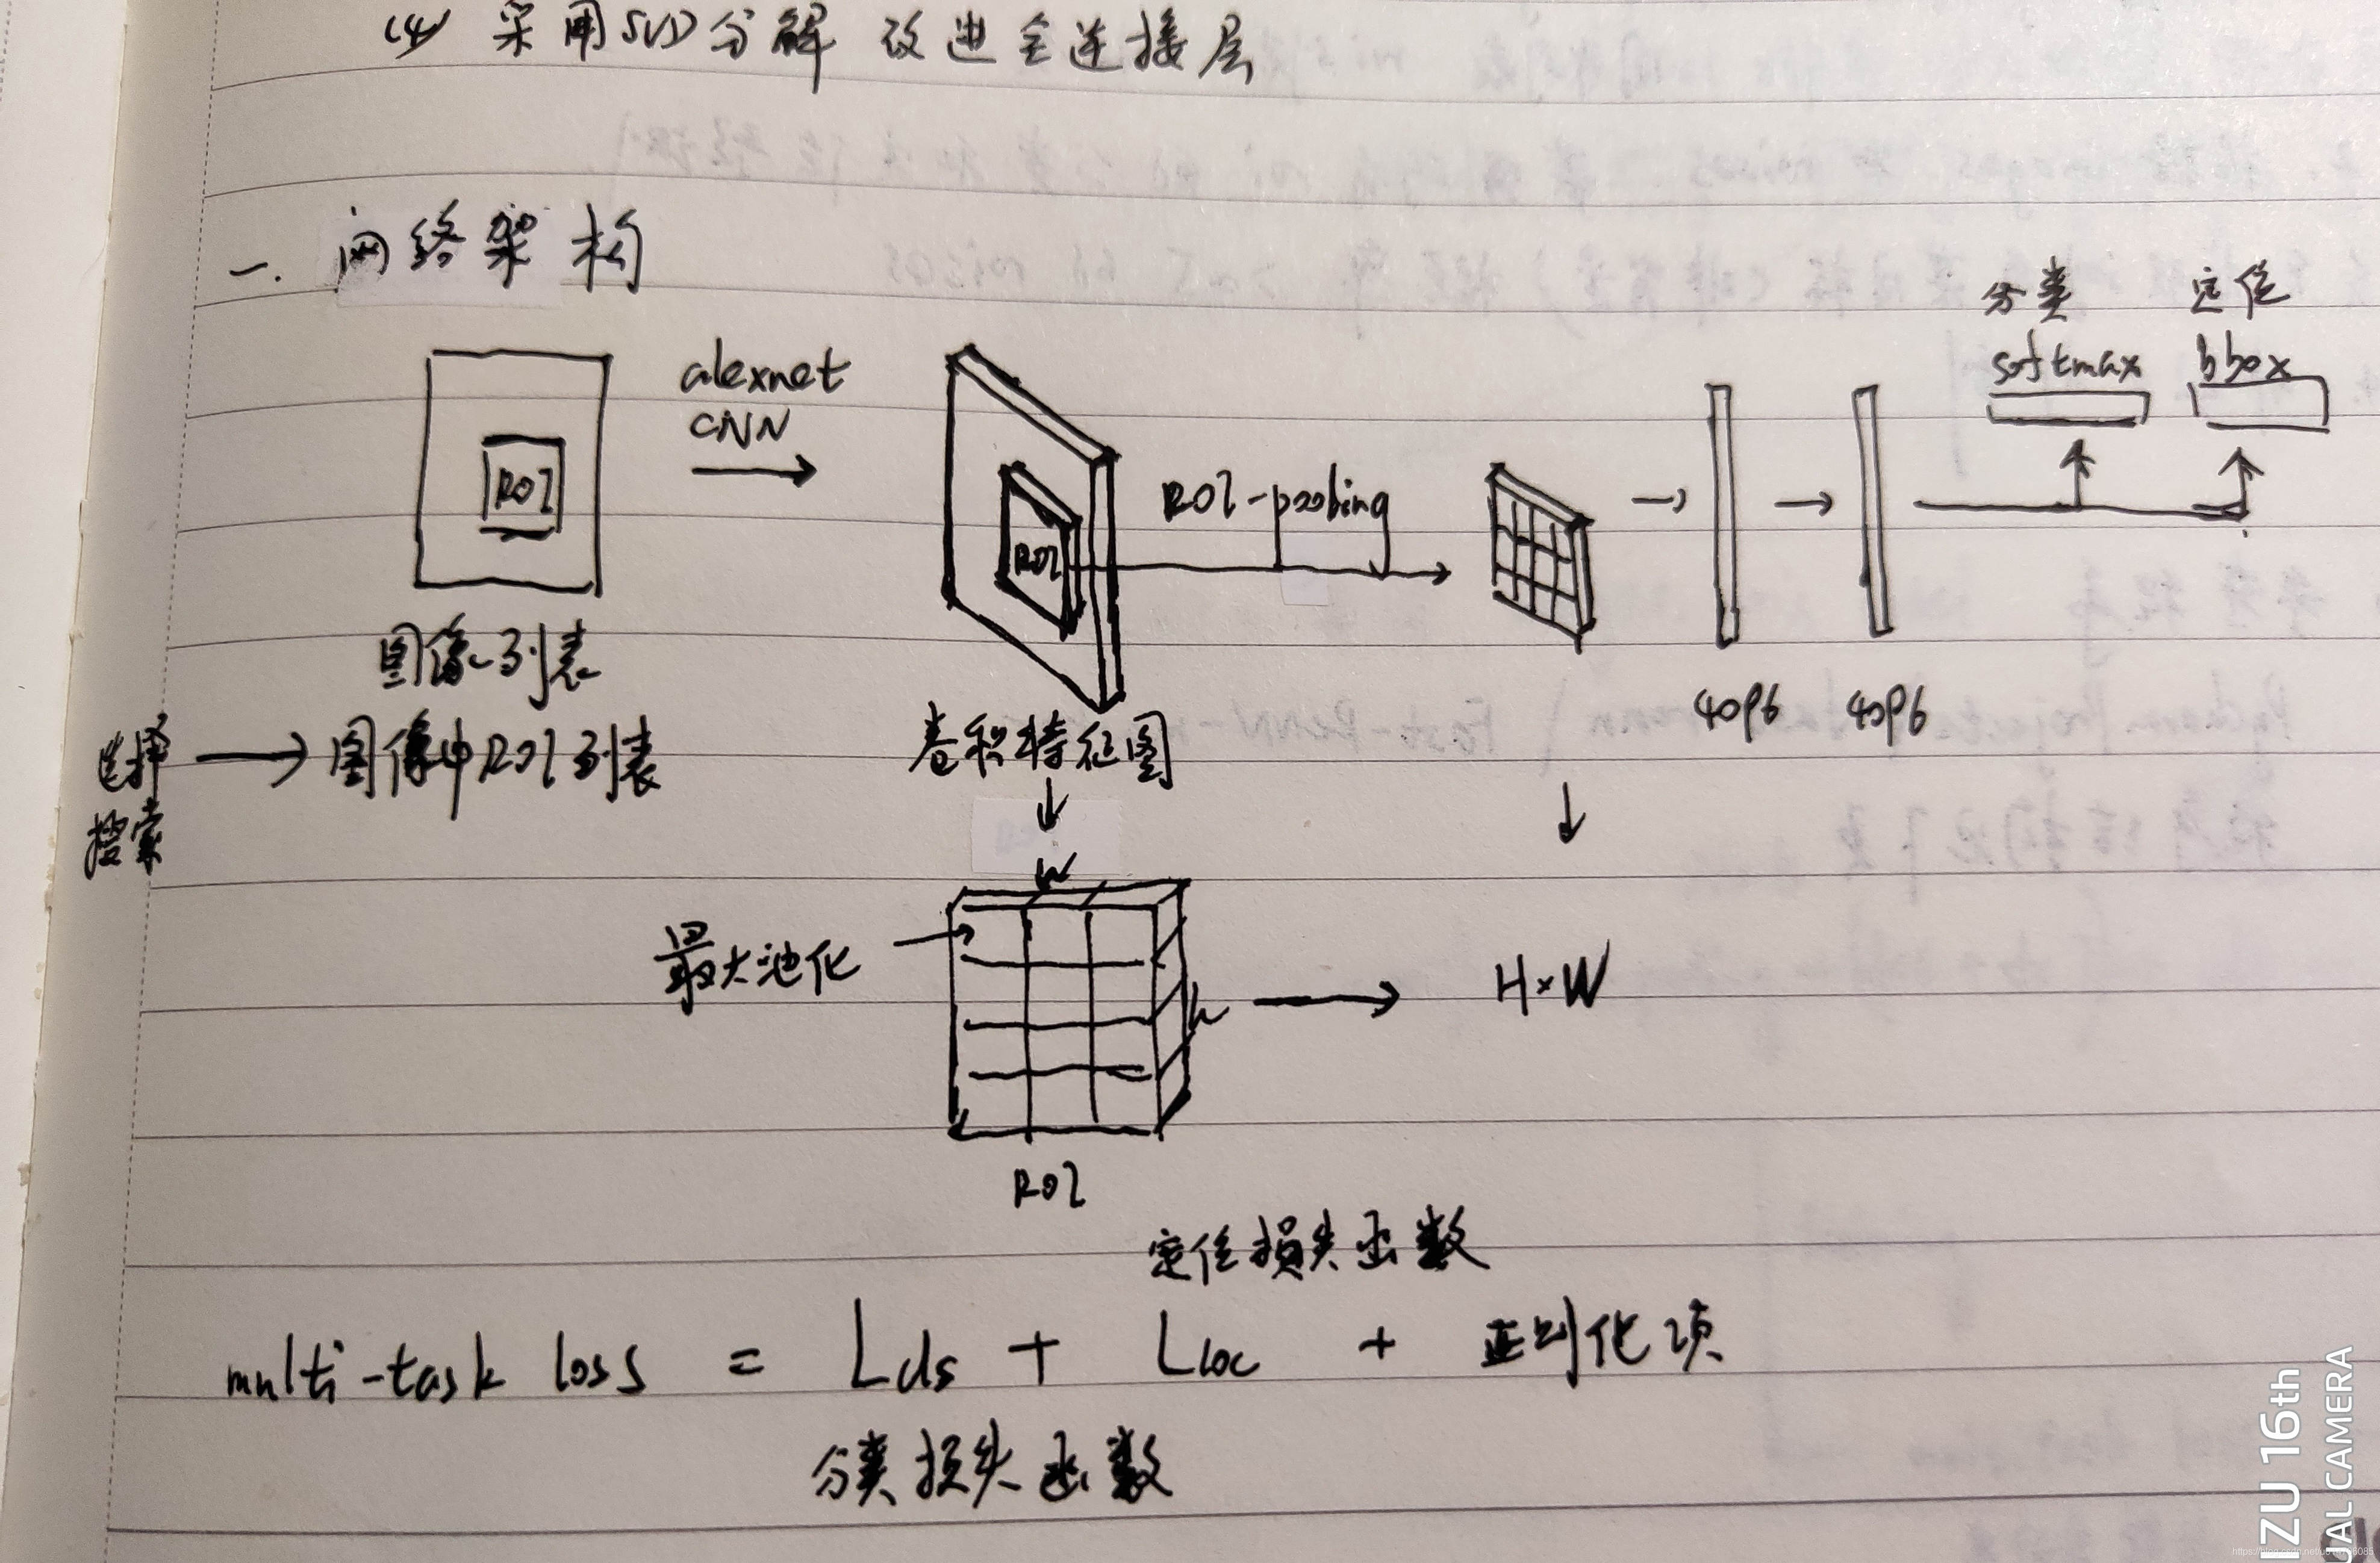 (4) 采用SVD分解 改进全连接层
一. 网络架构
分类 定位
softmax bbox
alexnet
CNN
ROI
ROI
ROI-pooling
图像列表
4096 4096
选择
搜索
图像中ROI列表
卷积特征图
w
最大池化
h
H×W
ROI
定位损失函数
multi-task loss = Lcls + Lloc + 正则化项
分类损失函数
IZU 16th
UAL CAMERA